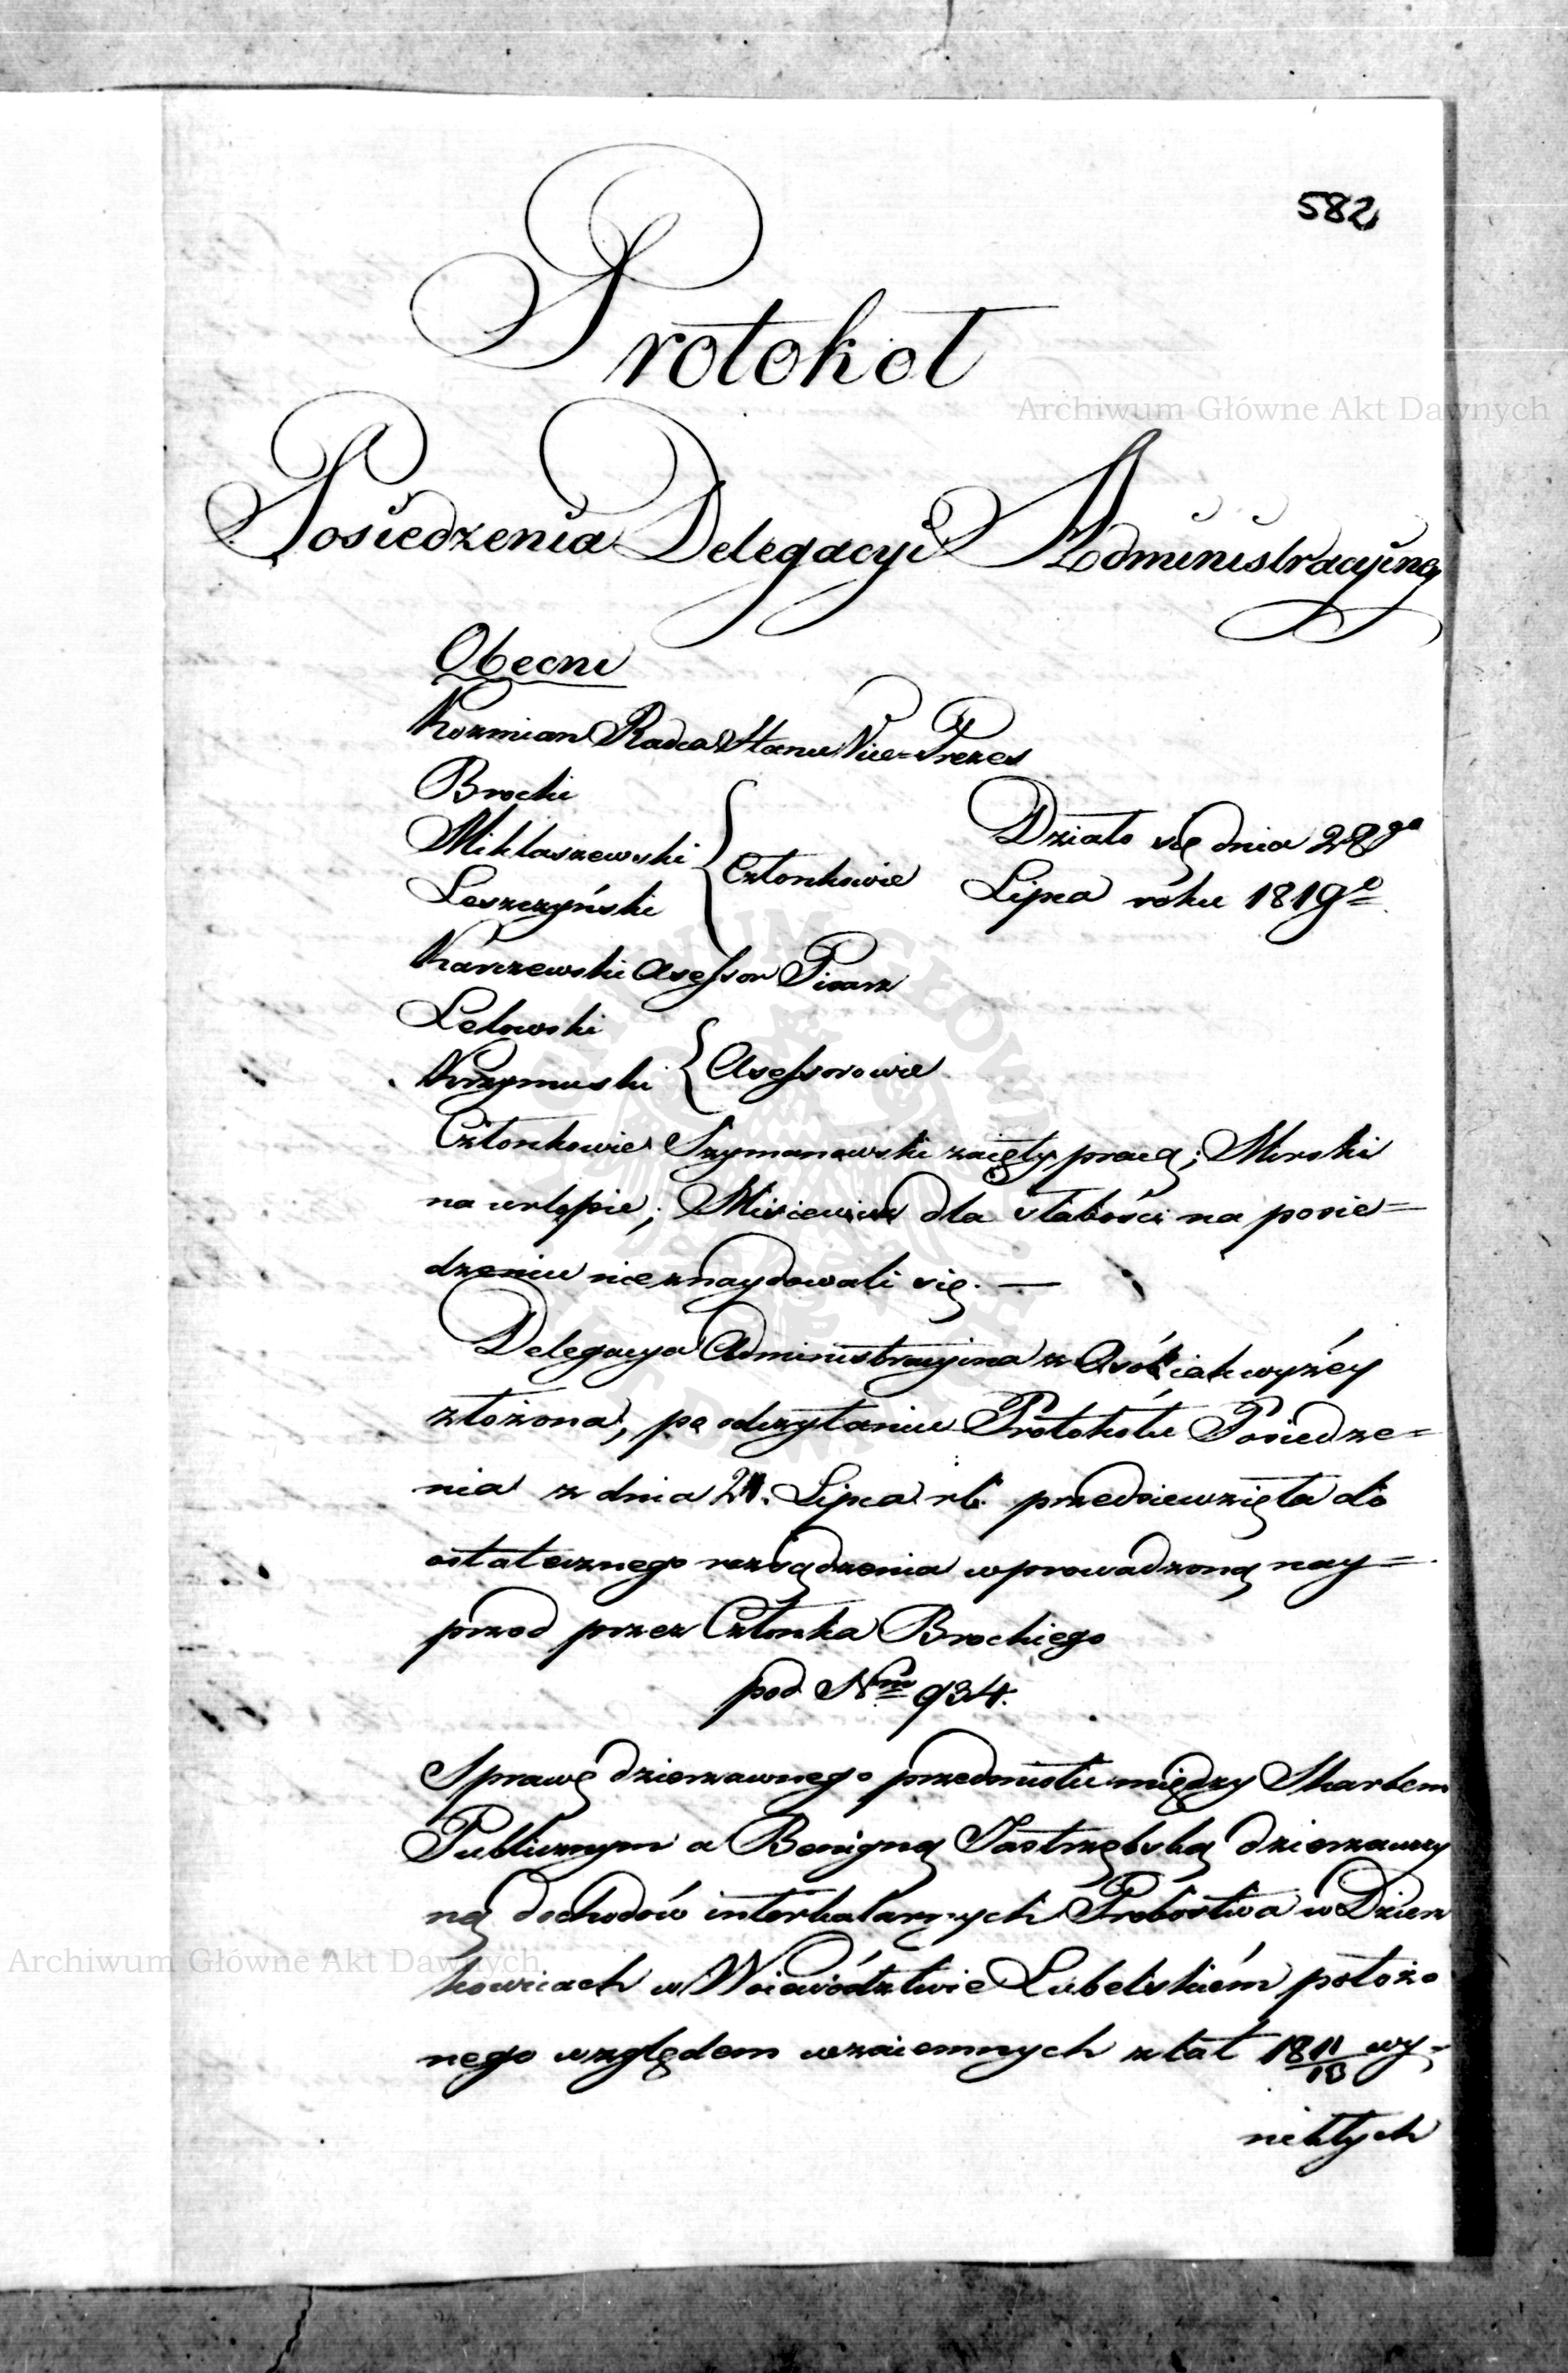 582
Protokoł
Posiedzenia Delegacyi Administracyiney
Obecni
Kozmian Radca Stanu Vice-Prezes
Brocki
Miklaszewski
Leszczyński
Członkowie
Działo się dnia 28go
Lipca roku 1819o
Karczewski Assessor Pisarz
Lelowski
Krzymuski
Assessorowie
Członkowie Szymanowski zaięty pracą; Mirski
na urlopie; Misiewicz dla słabości na posie=
dzeniu nie znaydowali się. —
Delegacya Administracyina z Osób iak wyżéy
złożona, po odczytaniu Protokółu Posiedze=
nia z dnia 21. Lipca rb. przedsiewzięła do
ostatecznego rozsądzenia wprowadzoną nay=
przod przez Członka Brockiego
pod Nrm 934.
Sprawę dzierzawnego przedmiotu między Skarbem
Publicznym a Benigną Jastrzębską dzierzawczy
nią dochodów interkalarnych Probostwa w Dzier
kowicach w Woiewództwie Lubelskiém położo
nego względem wzaiemnych z lat 1811/13 wy=
nikłych
Archiwum Główne Akt Dawnych
Archiwum Główne Akt Dawnych